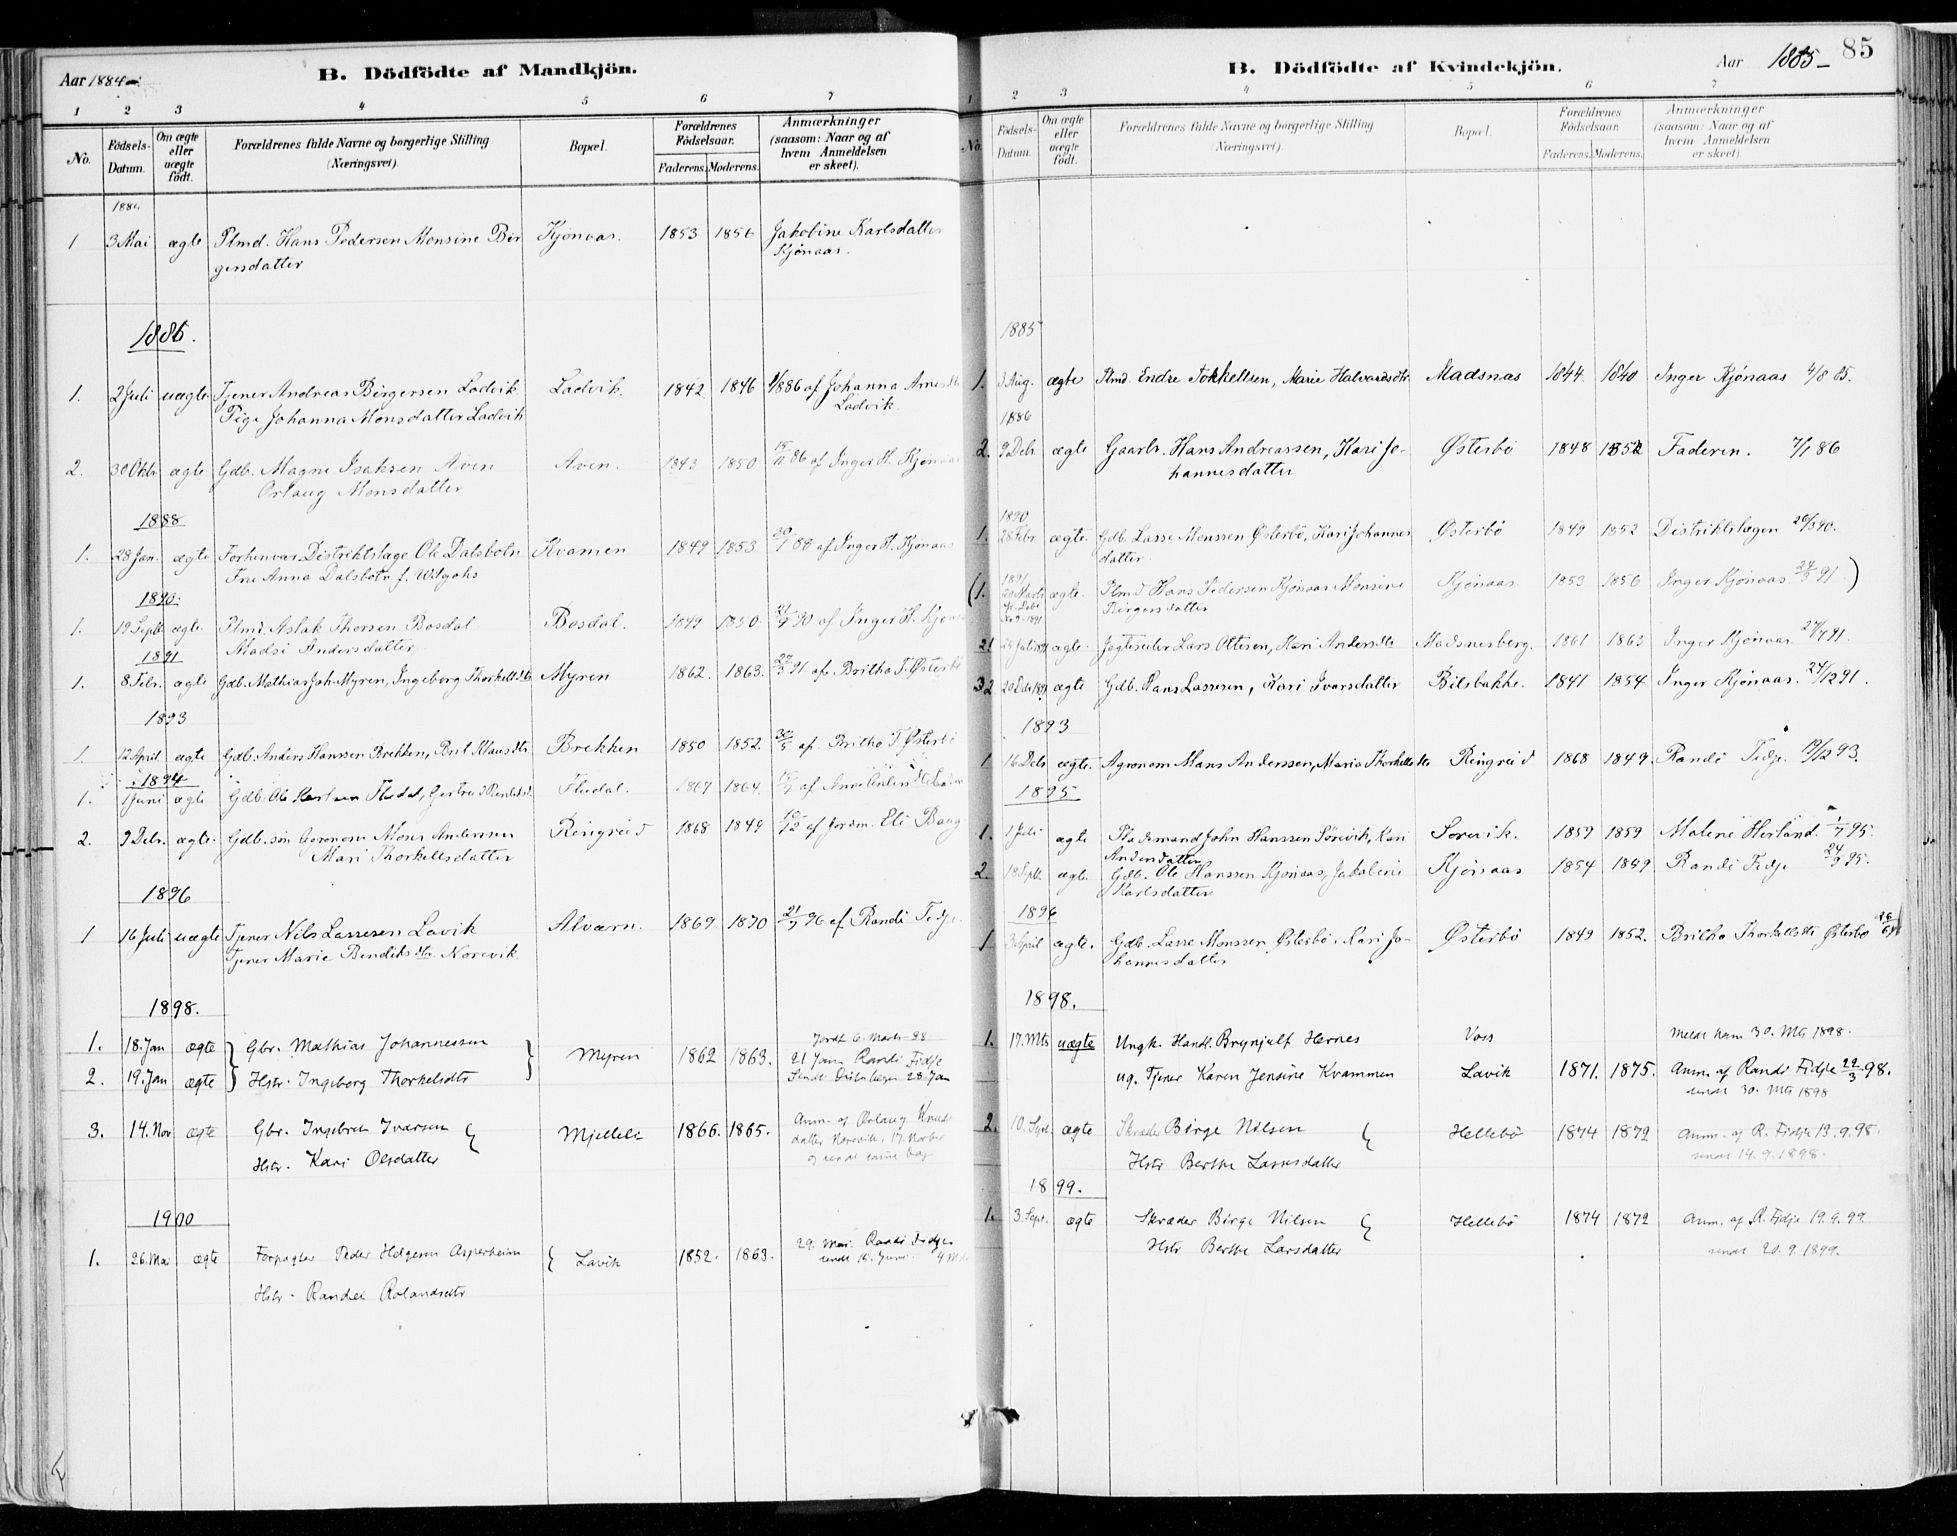 Aar 1884
B. Dödfödte af Mandkjön.
1 2 3 4 5 6 7
No. Födsels-Datum. Om ægte eller uægte født. Forældrenes fulde Navne og borgerlige Stilling (Næringsvei). Bopæl. Forældrenes Födselsaar. Faderens. Moderens. Anmærkninger (saasom: Naar og af hvem Anmeldelsen er skeet).
1 3 Mai ægte Plmd. Hans Pedersen Monsine Bir Kjönaas. 1853 1856 Jakobine Karlsdatter
gersdatter Kjönaas.
1886.
1. 2 Juli uægte Tjener Andreas Birgersen Ladvik Ladvik. 1842 1846 /886 af Johanna
Pige Johanna Monsdatter Ladvik Ladvik.
2. 30 Oktbr. ægte Gdb. Magne Isaksen Aven Aven. 1843 1850 86 af Inger H. Kjönaas
Orlaug Monsdatter
1888
1. 28 Jan. ægte Forhenvær. Distriktslæge Ole Dalsbotn Kvamen 1849 1853 88 af Inger H. Kjönaas
Fru Anna Dalsbotn f.
1890.
1. 19 Septb ægte Plmd. Aslak Thorsen Bosdal Bosdal. 1849 1850 90 af Inger H.
Madsi Andersdatter
1891
1. 8 Febr. ægte Gdb. Mathias Joh. Myren, Ingeborg Thorkelsdtr Myren 1862. 1863. 91 af Britha T. Österbö
1893
1. 12 April ægte Gdb. Anders Hanssen Brekken, Brit Klausdtr Brekken 1850 1852. 30/5 af Britha T Österbö
1894
1. 1 Juni ægte Gdb. Ole 1867 1864.
2. 9 Debr. ægte Gdb. søn Mons Anderssen Ringreid 1868 1849 af Jordm. Eli
Mari Thorkellsdatter
1896
1 16 Juli uægte Tjener Nils Lassesen Lavik Alværn. 1869 1870 21/7 96 af Randi Fidje.
Tjener Marie Bendiksdtr. Norevik.
1898.
1. 18. Jan ægte Gbr. Mathias Johannessen Myren 1862 1863.
2. 19. Jan ægte Hstr. Ingeborg Thorkelsdtr 21 Jan Randi Fidje
28. Jan
3. 14. Nov ægte Gbr. Ingebret Ivarsen Mjellele 1866. 1865. Anm. af Orlaug Knuds
Hstr. Kari Olsdatter datter Norevik, 17. Novber
og sendt samme Dag
1900
1. 26. Mai ægte Forpagter Peder Helgesen Asperheim Lavik 1852. 1863. 29. Mai. Randi Fidje
Hstr. Randei Rolandsdtr
B. Dödfödte af Kvindekjön.
Aar 1885 85
1 2 3 4 5 6 7
No. Födsels-Datum. Om ægte eller uægte födt. Forældrenes fulde Navne og borgerlige Stilling (Næringsvei). Bopæl. Forældrenes Födselsaar. Faderens. Moderens. Anmærkninger (saasom: Naar og af hvem Anmeldelsen er skeet).
1885
1. 3 Aug. ægte Plmd. Endre Torkellsen, Marie Halvardsdtr. Madsnas 1844. 1840 Inger Kjönaas 4/8 85.
1886
2. 9 Debr. ægte Gaardbr. Hans Andreassen, Kari Jo- Østerbö 1848 1852 Faderen. 7/1 86
hannesdatter
1890
1. 28 Febr ægte. Gdb. Lasse Monssen Østerbö, Kari Johannes Østerbö 1849 1852 Distriktslægen 20/3 90.
datter.
1891
(1. 20 Marts ægte. Plmd Hans Pedersen Kjönaas Monsine Kjönaas. 1853 1856 Inger Kjönaas. 24/3 91.)
Birgersdatter
21 25 Juli 1891 ægte. Jagteseiler Lars Ottesen, Kari Andersdtr Madsnesberg. 1861 1863 Inger Kjönaas 27/7 91.
32 20 Debr 1891 ægte Gdb. Hans Lassesen, Kari Ivarsdatter Bilsbakke. 1841 1854 Inger Kjönaas. 24/12 91.
1893
1 16 Debr ægte. Agronom Mons Anderssen, Maria Thorkellsdtr Ringreid 1868 1849. Randi Fidje 19/12 93.
1895
1. 1 Juli ægte Pladsmand John Hanssen Sörevik, Kari Sørevik. 1859 1859 Malene Herland. 1/7 95.
Andersdatter
2. 18 Septb. ægte. Gdb. Ole Hanssen Kjönaas, Jakobine Kjönaas 1854 1849 Randi Fidje 24/9 95.
Karlsdatter
1896
1. 3 April ægte. Gdb. Lasse Monssen Østerbö. Kari Jo- Østerbö 1849 1852. Britha Thorkellsdtr Østerbö
hannesdatter
1898.
1. 17. Mts uægte Ungk. Handl. Brynjulf Hernes Voss Meldt ham 30. Mts 1898.
ug. Tjener Karen Jensine Kvammen Lavik 1871. 1875. Anm. af Randi Fidje 22/3 98.
sendt 30. Mts 1898
2. 10. Sept. ægte Skræder Børge Nilsen Hellebö 1874 1872 Anm. af R. Fidje 13.9.98.
Hstr Berthe Larsdatter sendt 14.9.1898.
1899.
1. 3. Sept. ægte Skræder Børge Nilsen Hellebö 1874 1872 Anm. af R. Fidje 19.9.99
Hstr Berthe Larsdatter sendt 20.9.1899.